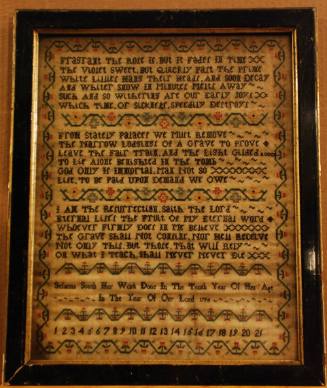 Fragrant The Rose Is, But It Fades In Time
The Violet Sweet, But Quickly Past The Prime
White Lillies Hang Their Heads, And Soon Decay
And Whiter Snow In Minutes Melts Away
Such And So Withering Are Our Early Joys
Which Time, Or Sickness, Speedily Destroys
From Stately Palaces We Must Remove
The Narrow Lodgings Of A Grave To Prove
Leave The Fair Train, And The Light Gilded Room
To Lie Alone Benighted In The Tomb
God Only Is Immortal, Man Not So
Life, To Be Paid Upon Demand We Owe
I Am The Resurrection, Saith The Lord
Eternal Life's The Fruit Of My Eternal Word
Whoever Firmly Does In Me Believe
The Grave Shall Not Confine, Nor Hell Receive
Not Only This, But Those, That Will Rely
On What I Teach, Shall Never Never Die
South Her Work Done In The Tenth Year Of Her Age
In The Year Of Our Lord
1 2 3 4 5 6 7 8 9 10 11 12 13 14 15 16 17 18 19 20 21